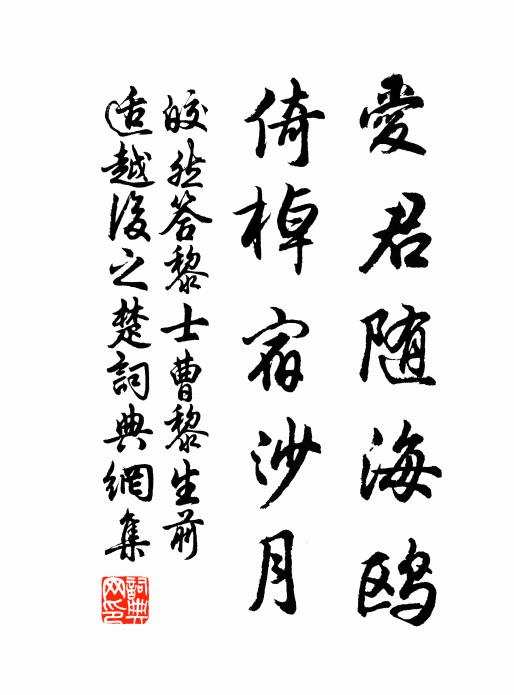 愛君随海鸥
倚棹宿沙月
皎然答黎士曹黎生前
适越後之楚詞典網集
詞典网印